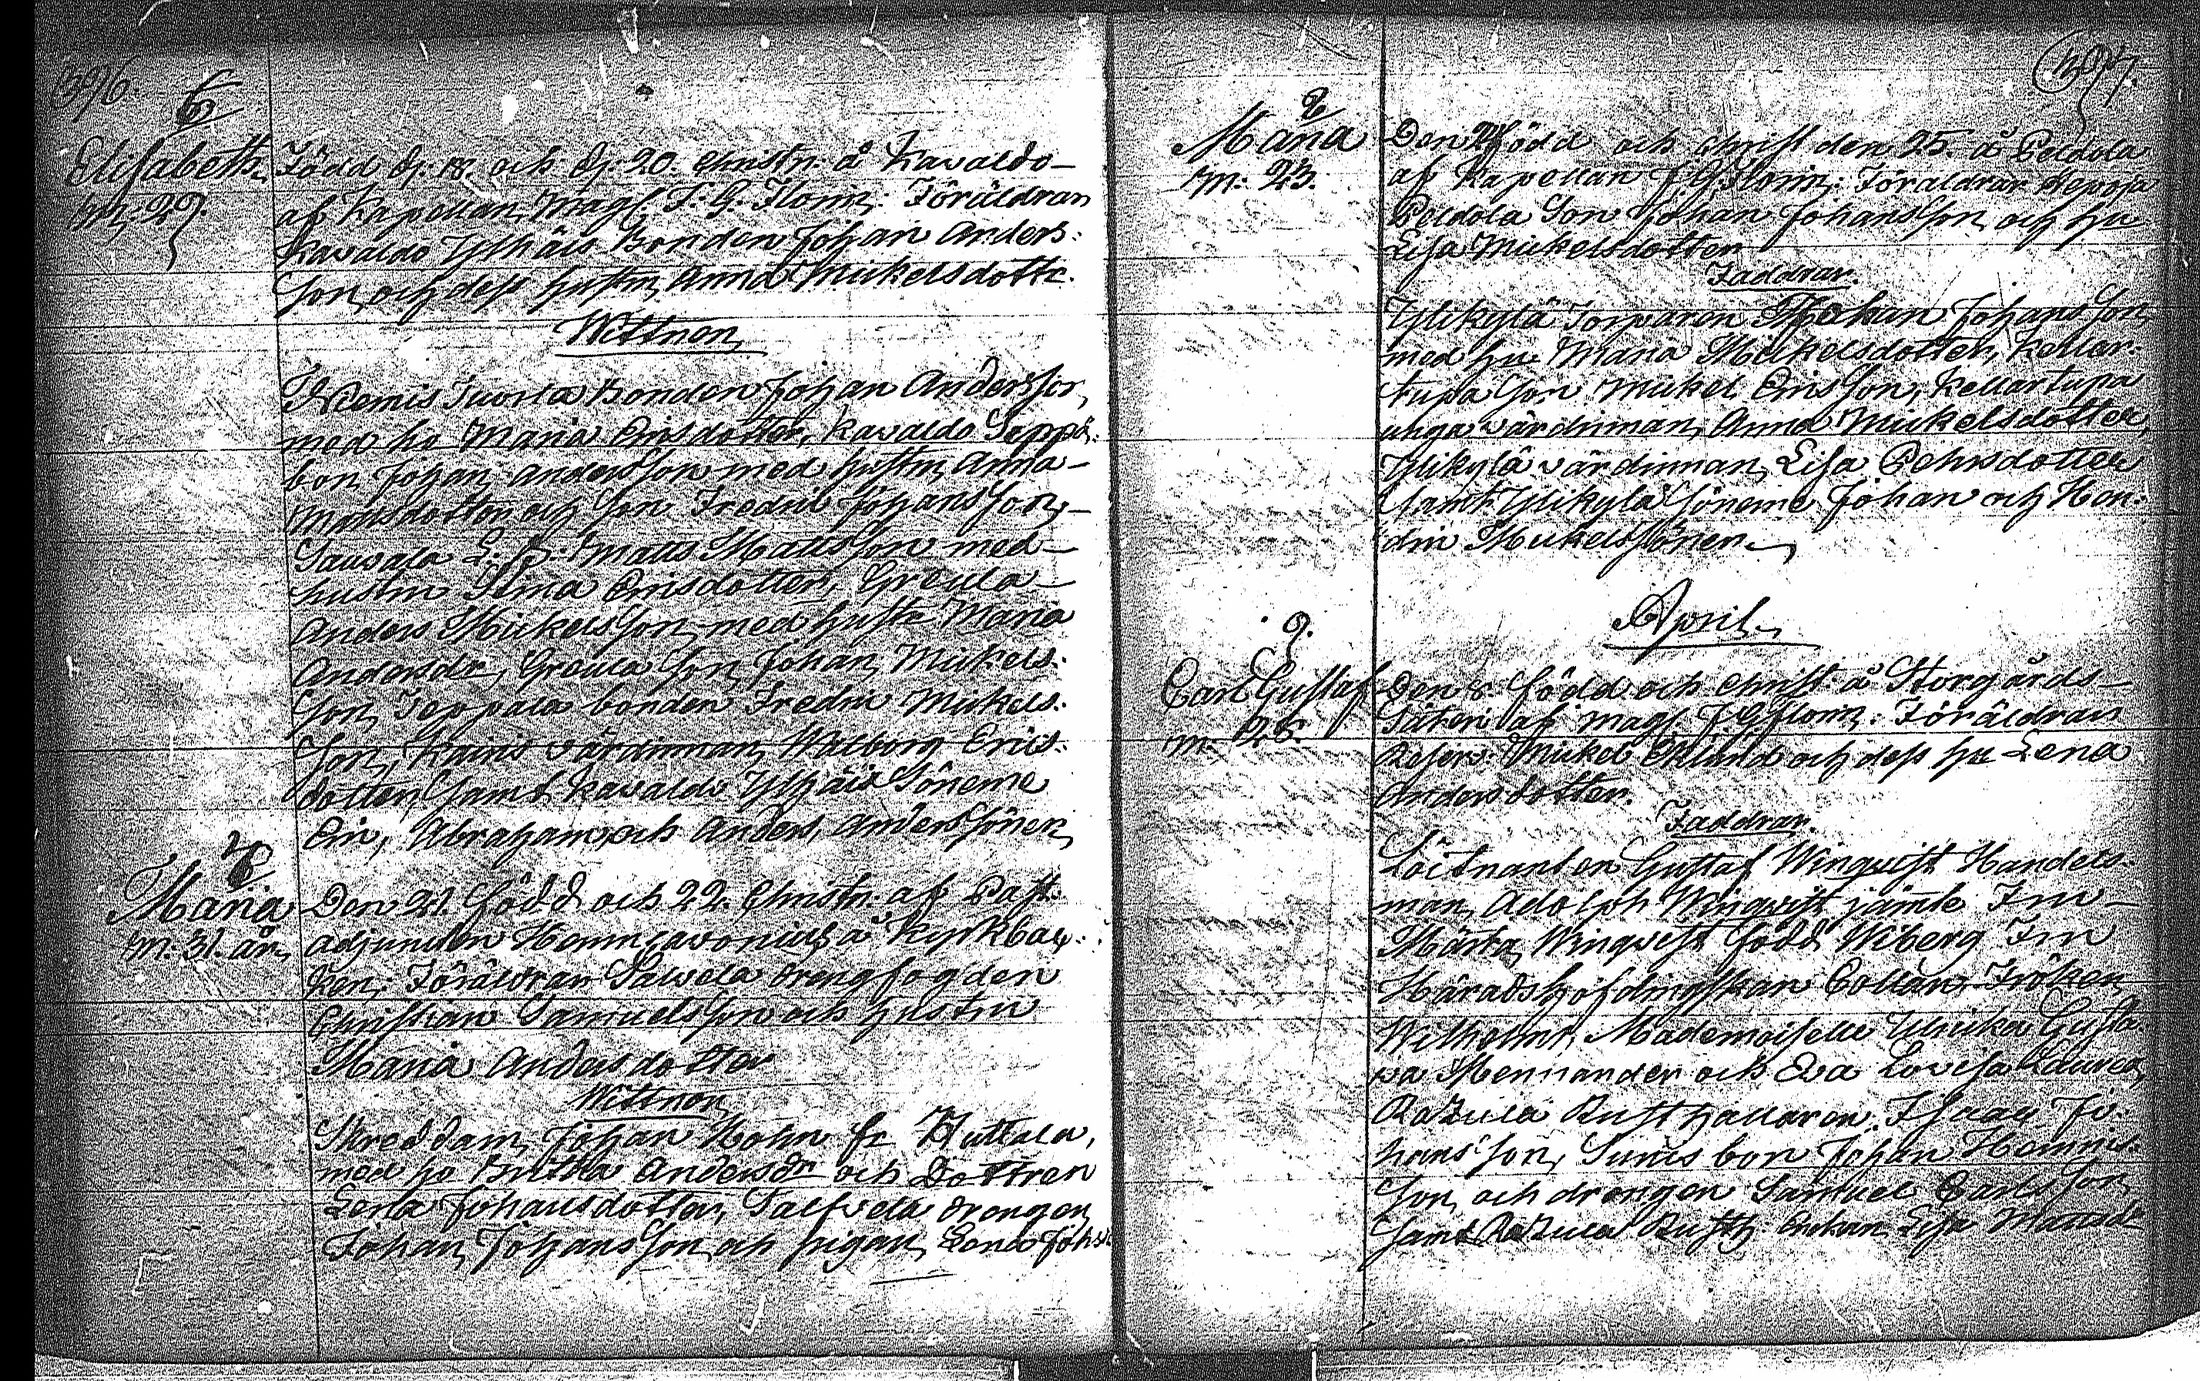 396.
6
Elisabeth
m: 29.
Född d: 18. och d: 20. Christn: å Kavaldo
af Kapellan, Mag. F. G. Florin: Föräldran
Kavaldo Ylhäis Bonden Johan Anders:
Son, och dess hustru, Anna Mickelsdottr.
Wittnen,
Niemis Bonden Johan Andersson,
med ho Maria Ersdotter, Kavaldo Seppä:
bon, Johan Andersson med hustru, Anna
Monsdotter och Son Fredric Johansson,
Matts Mattsson med
hustru Stina Ersdotter, Greula
Anders Mickelsson, med hustr Maria
Andersdr, Greula Son, Johan, Mickels:
Son, Seppälä bonden Fredric Mickels:
Son, värdinnan, Walborg Erics:
dotter, Samt Kavaldo Ylhäis Sönerne
Eric, Abraham, och Anders, Anderssöner,
7
Maria
m. 31. år,
Den 21. född och 22. Christn: af Past:
adjuncten Henric å Kyrkbac:
ken: Föräldran drengfogden
Christian Samuelsson och hustru
Maria Andersdotter
Wittnen,
Skreddarn, Johan fr
med ho Andersdr och Dottren
Lena Johansdotter, drengen,
Johan, Johansson, och pigan, Lena Johsd:
397.
8
Maria
m: 23.
Den född och Christ den 25. å Peldola
af Kapellan F G Florin: Föräldrar
Peldola Son Johan Johansson, och hu
Lisa Mickelsdotter
Faddrar.
Ylikylä Torparen Johan Johansson
med hu Maria Mickelsdotter, Kellar:
tupa Son Mickel Ericsson, Kellartupa
unga värdinnan, Anna Mickelsdotter,
Ylikylä värdinnan, Lisa Pehrsdotter
Samt Ylikylä Sönerne Johan och Hen:
dric Mickelssöner.
April,
9.
Carl Gustaf
m. 26.
Den 8. född och Christ å Storgårds
Säteri af Mag. F G Florin: Föräldran
Mickel Eklund och dess hu Lena
Andersdotter.
Faddrar.
Löitnanten Gustaf Winqwist Handels:
man, Adolph Winqwist jämte Fru
Märta, Winqwist född Wiberg Fru
Häradshöfdingskan Collan, Fröken
Wilhelmi, Mademoiselle Ulrika Gusta:
va Mennander och Eva Lovisa
Rusthållaren, Isaac Jo:
hansson, bon Johan Henrics:
Son, och drengen Samuel Carlsson,
Samt Rusth: Enkan Lisa Mattsdr